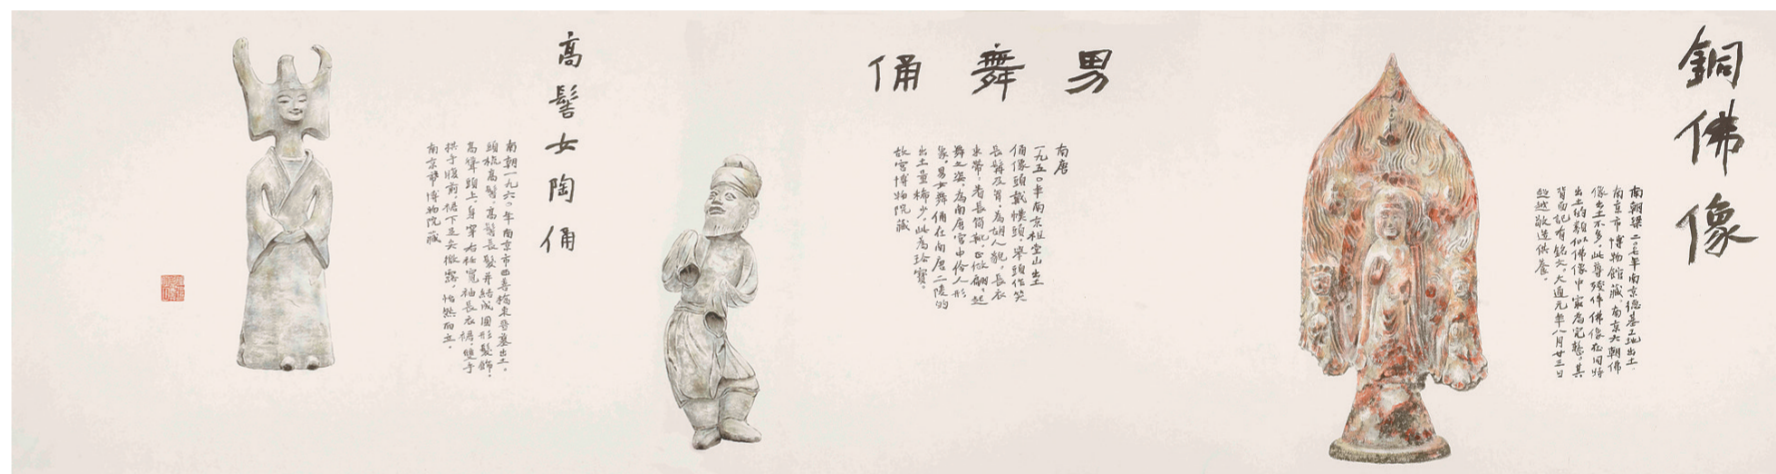 銅佛像
南朝梁二〇〇七年南京德基工地出土。
南京市博物館藏、南京六朝佛
像出土不多，此尊殘件佛像在同時
出土的類似佛像中最為完整。其
背面記有銘文，大通元年八月廿三日
超越敬造供養。
男舞俑
南唐
一九五〇年南京祖堂山出土
俑像頭戴幞頭、舉頭作笑
長髯及胸，為胡人貌，長衣
束帶，着長筒靴，正做翩起
舞之姿，為南唐宮中伶人形
象，男女舞俑在南唐二陵的
出土量稀少，此為珍寶。
故宮博物院藏
高髻女陶俑
南朝一九六〇年南京市西善橋東晉墓出土。
頭梳高髻，高髻長髮并結成圓形髮飾，
高聳頭上，身穿右衽寬袖長衣裙，雙手
拱于腹前，裙下足尖微露，怡然而立。
南京市博物院藏